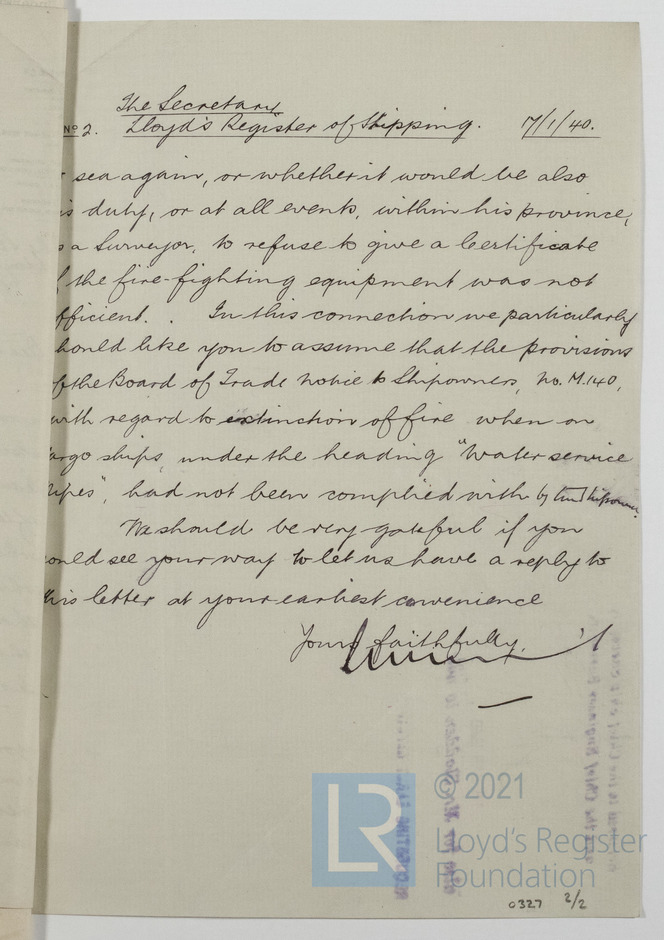 The Secretary
No 2. Lloyd's Register of Shipping. 17/1/40.
sea again, or whether it would be also
is duty, or at all events, within his province,
s a Surveyor, to refuse to give a Certificate
f the fire-fighting equipment was not
fficient. In this connection we particularly
hould like you to assume that the provisions
of the Board of Trade Notice to Shipowners, No. M.140,
with regard to extinction of fire when on
argo ships, under the heading "Water service
ipes", had not been complied with by the Shipowner.
We should be very grateful if you
ould see your way to let us have a reply to
his letter at your earliest convenience
Yours faithfully,
© 2021
LR Lloyd's Register
Foundation
0327 2/2